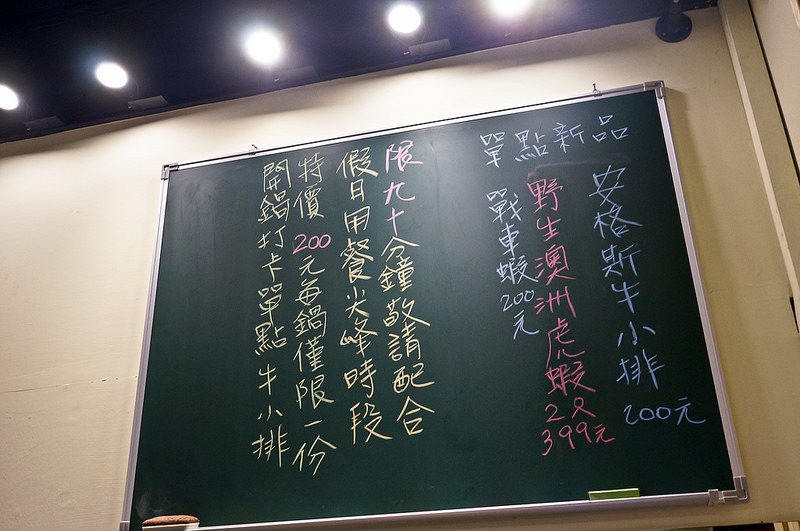 單點新品
安格斯牛小排 200元
野生澳洲虎蝦 2只 399元
戰車蝦 200元
限九十分鐘敬請配合
假日用餐尖峰時段
特價 200元每鍋僅限一份
開鍋打卡單點牛小排